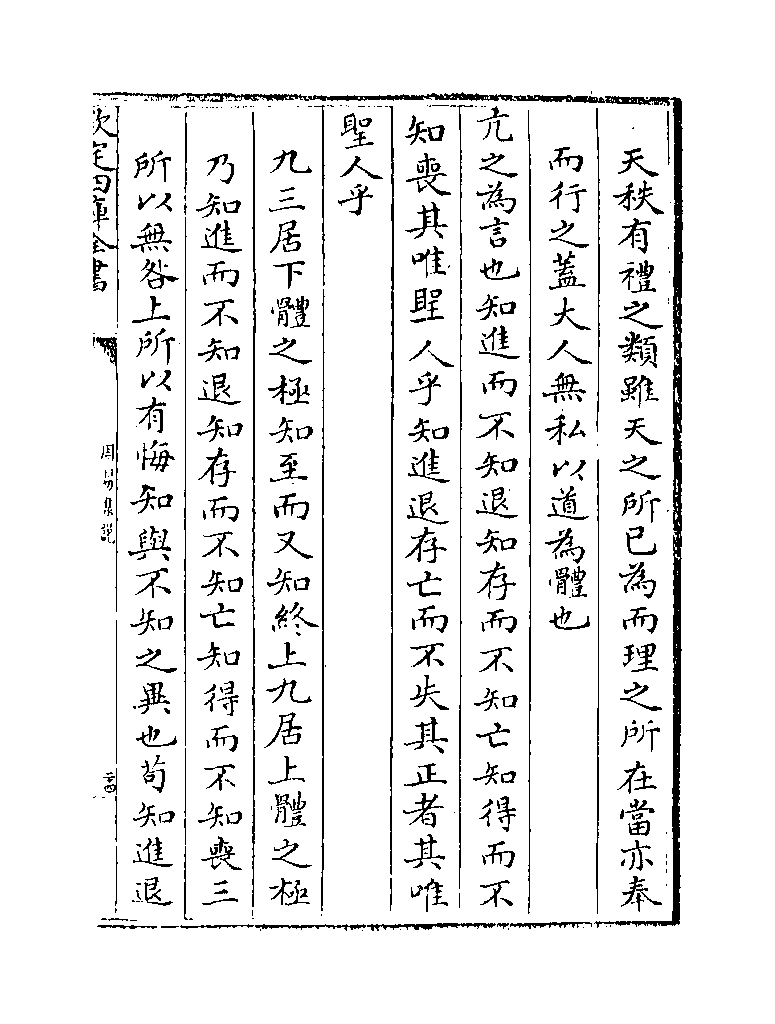 天秩有禮之類雖天之所已為而理之所在當亦奉
而行之蓋大人無私以道為體也
亢之為言也知進而不知退知存而不知亡知得而不
知喪其唯聖人乎知進退存亡而不失其正者其唯
聖人乎
九三居下體之極知至而又知終上九居上體之極
乃知進而不知退知存而不知亡知得而不知喪三
所以無咎上所以有悔知與不知之異也茍知進退
欽定四庫全書
周易集說
二十四